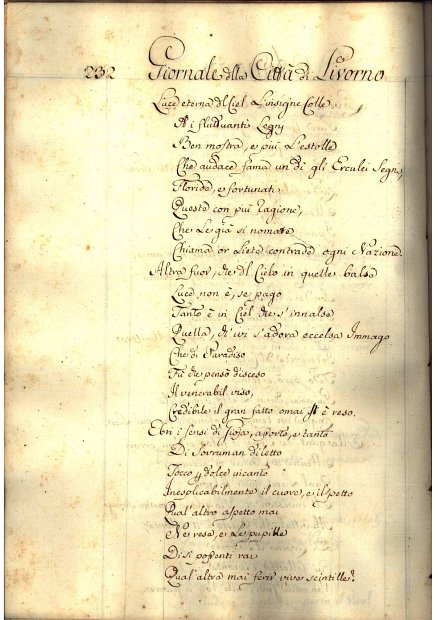 232 Giornale della Città di Livorno
Luce eterna del Ciel L'insigne Colle
A i fluttuanti Legni
Ben mostra, e più L'estolle
Che audace fama un dì gli Erculei Segni,
Floride, e fortunate
Queste con più ragione,
Che Le già sì nomate
Chiama or Liete contrade ogni Nazione.
Altra fuor, che del Cielo in quelle balse
Luce non è, se pago
Tanto è in Ciel che s'innalse
Quella, ch'ivi s'adora eccelsa Immago
Che di Paradiso
Fù che pensò disceso
Il venerabil viso,
Credibile il gran fatto omai è reso.
Ebri i sensi di Gioja, assorto, e tanto
Di Sovruman diletto
Tocco dolce
Inesplicabilmente il cuore, e il petto
Qual'altro aspetto mai
Ne rese, e Le pupille
Di sì possenti rai
Qual'altra mai ferir vive scintille?